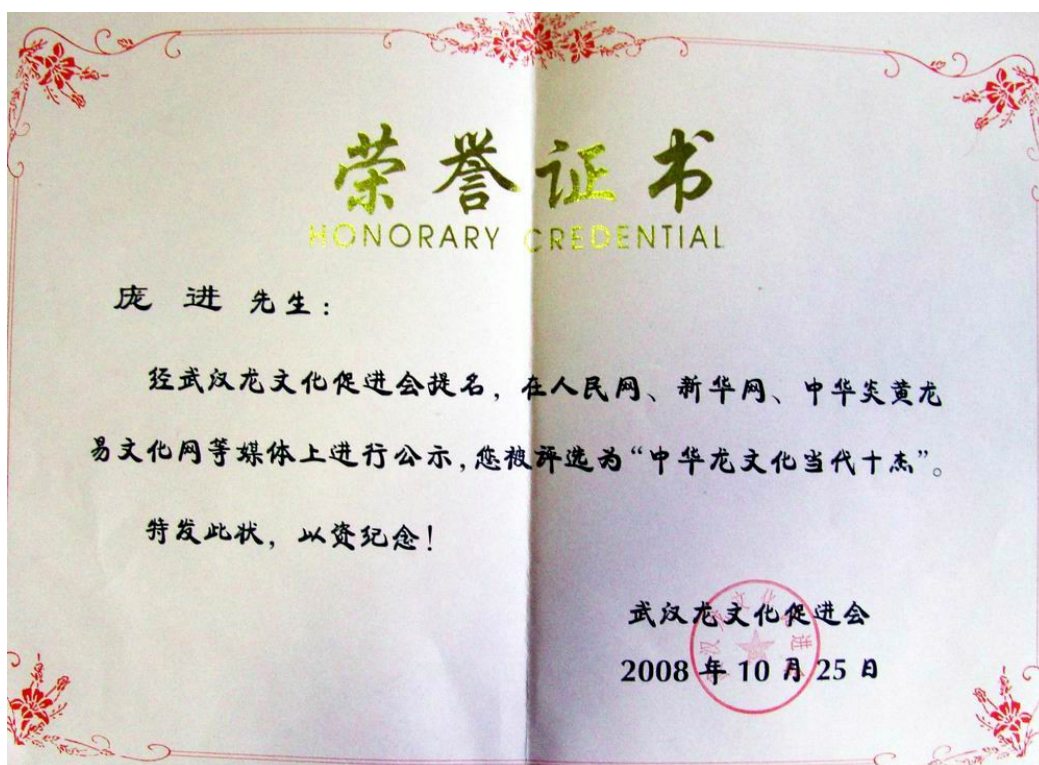 荣誉证书
HONORARY CREDENTIAL
庞进 先生：
经武汉龙文化促进会提名，在人民网、新华网、中华炎黄龙
易文化网等媒体上进行公示，您被评选为“中华龙文化当代十杰”。
特发此状，以资纪念！
武汉龙文化促进会
2008年10月25日